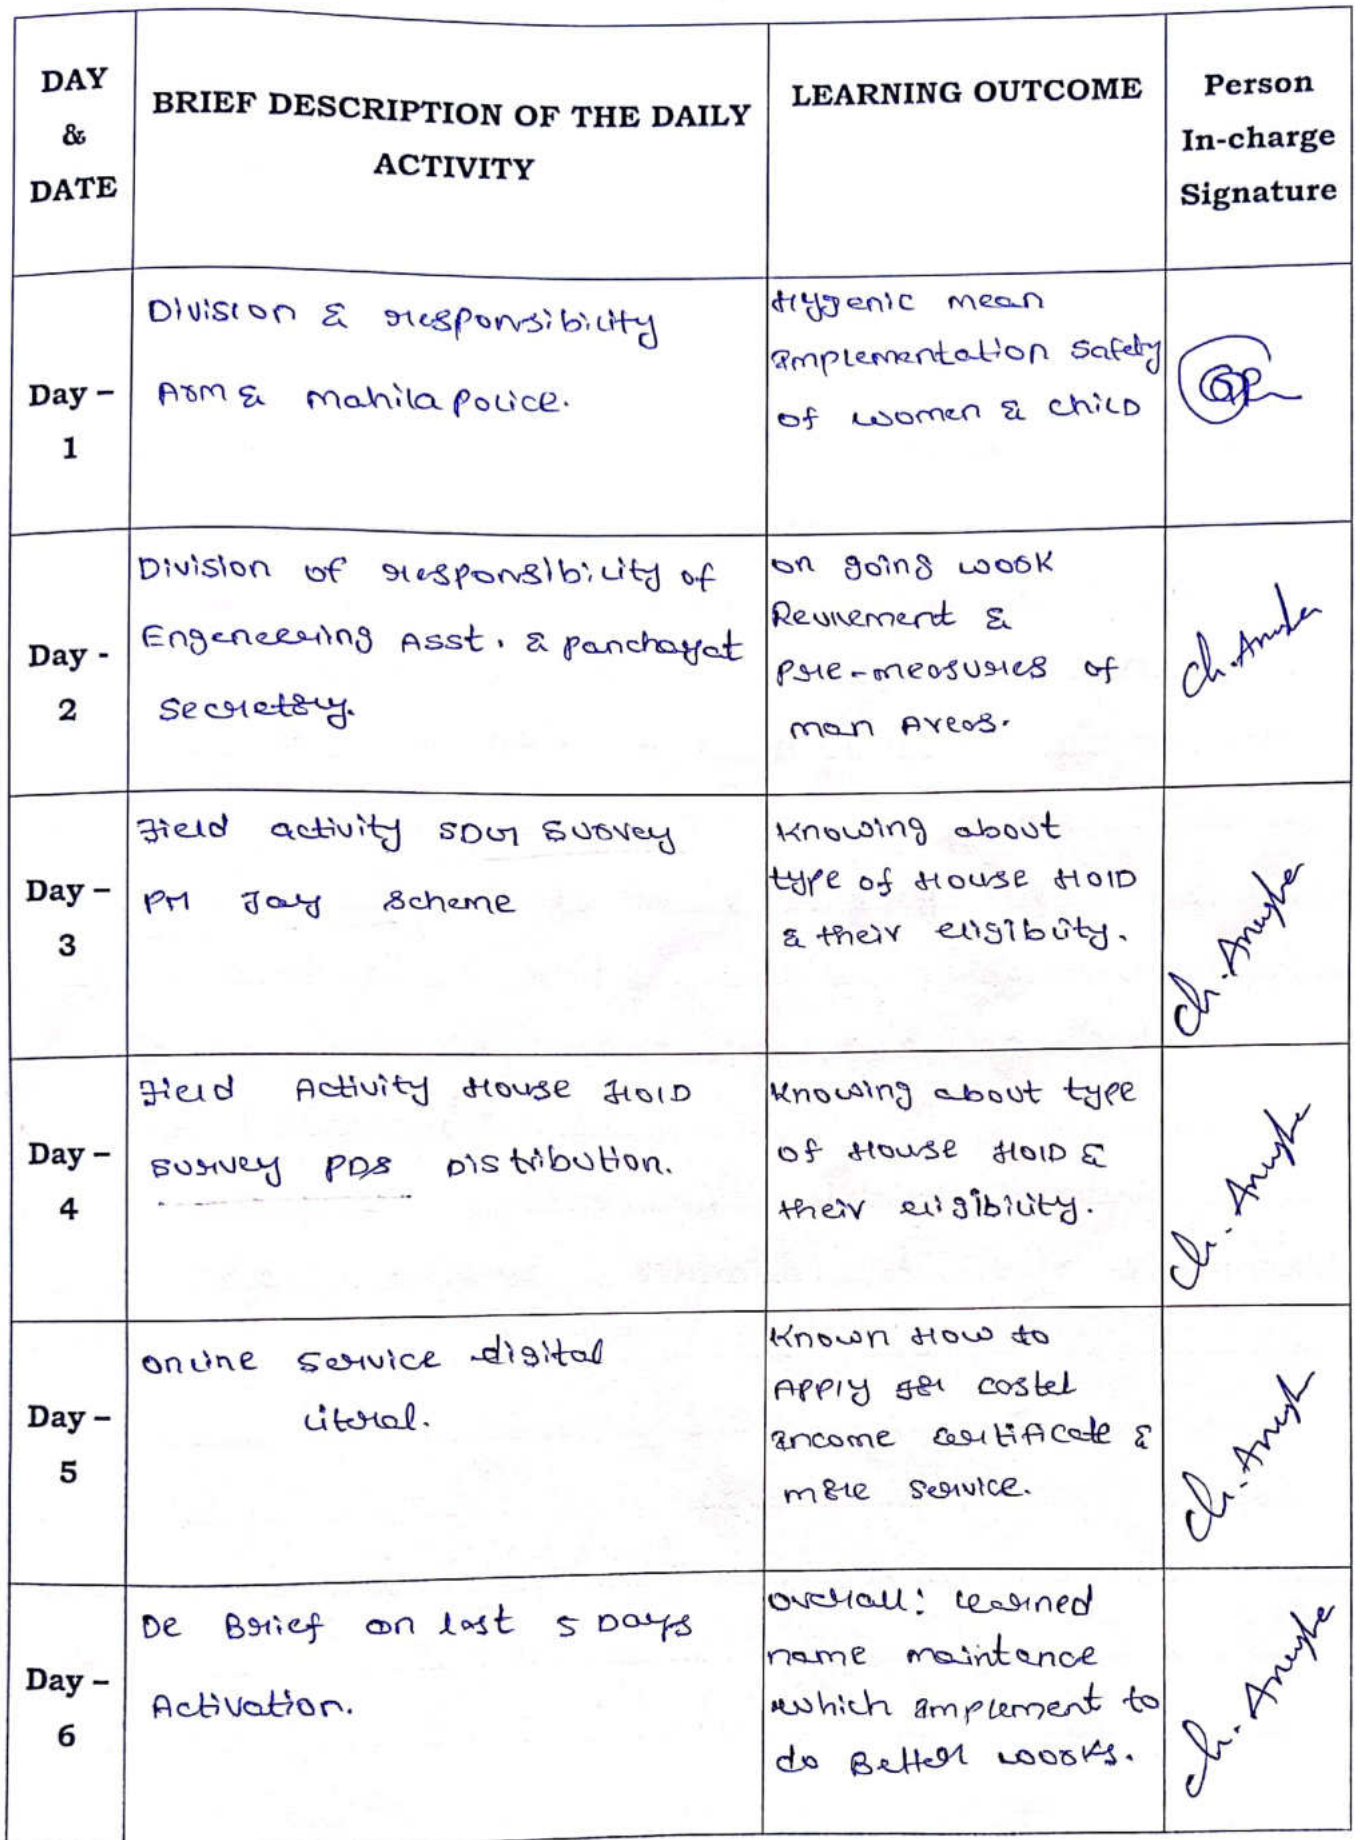 DAY
&
DATE
BRIEF DESCRIPTION OF THE DAILY
ACTIVITY
LEARNING OUTCOME
Person
In-charge
Signature
Day –
1
Division & responsibility
Asm & mahila police.
Hygenic mean
implementation safety
of women & child
Day -
2
Division of responsibility of
Engeneering Asst. & panchayat
secretory.
on going work
&
pre-measures of
man Areas.
ch.
Day –
3
Field activity SDG survey
PM Jay Scheme
Knowing about
type of House Hold
& their eligibility.
ch.
Day –
4
Field Activity House Hold
survey PDS Distribution.
Knowing about type
of House Hold &
their eligibility.
ch.
Day –
5
online service digital
literal.
Known How to
Apply for costel
income certificate &
more service.
ch.
Day –
6
De Brief on last 5 Days
Activation.
overall: learned
name maintance
which implement to
do Better works.
ch.